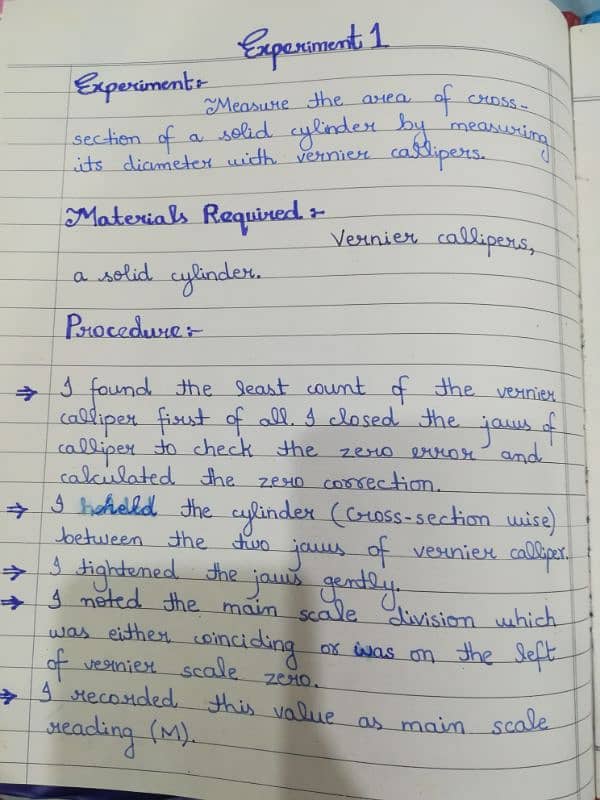 Experiment 1
Experiment:-
Measure the area of cross-
section of a solid cylinder by measuring
its diameter with vernier callipers.
Materials Required:-
Vernier callipers,
a solid cylinder.
Procedure:-
⇒ I found the least count of the vernier
calliper first of all. I closed the jaws of
calliper to check the zero error and
calculated the zero correction.
⇒ I held the cylinder (cross-section wise)
between the two jaws of vernier calliper.
⇒ I tightened the jaws gently.
⇒ I noted the main scale division which
was either coinciding or was on the left
of vernier scale zero.
⇒ I recorded this value as main scale
reading (M).